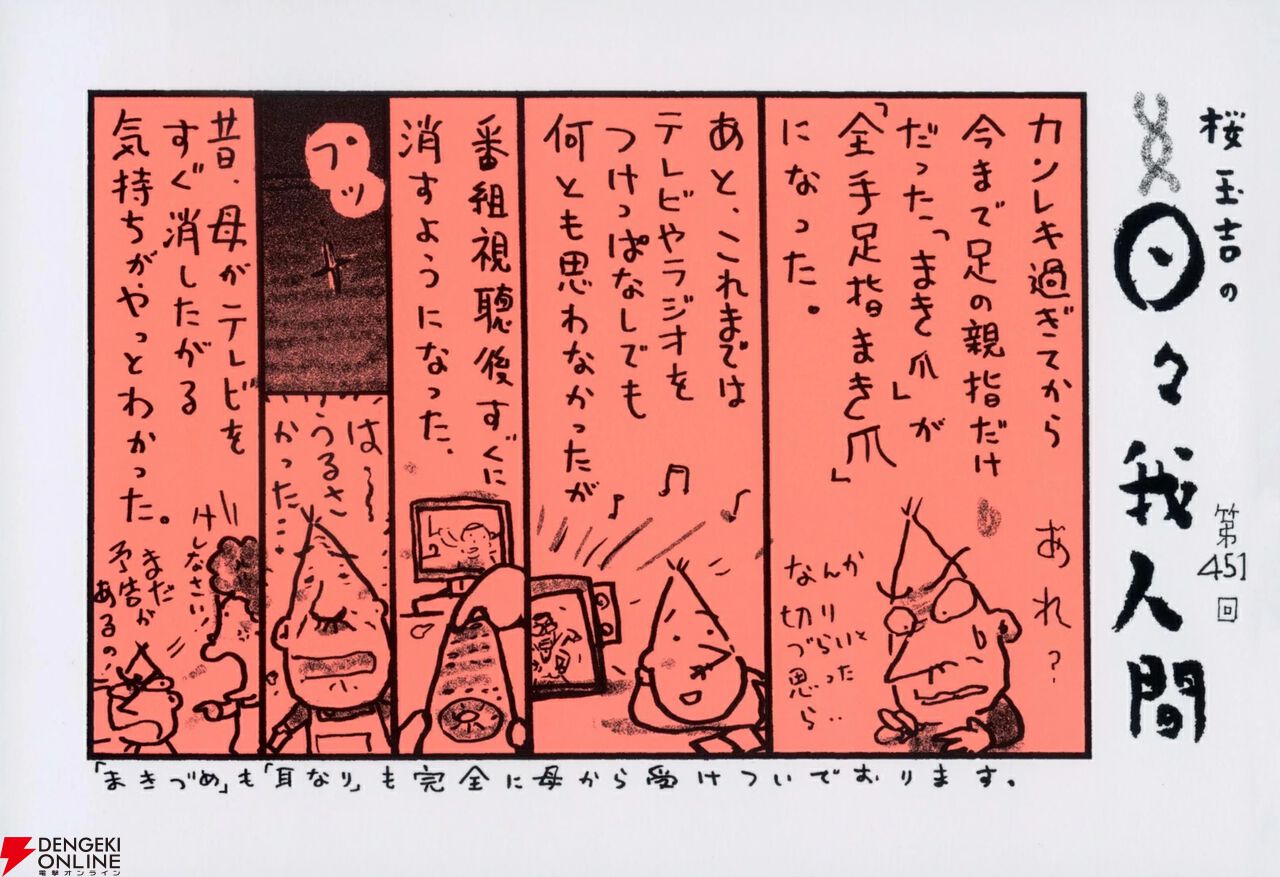 桜玉吉の
日々我人間
第451回
カンレキ過ぎてから
今まで足の親指だけ
だった「まき爪」が
「全手足指まき爪」
になった。
あれ?
なんか
切りづらいと
思ったら‥
あと、これまでは
テレビやラジオを
つけっぱなしでも
何とも思わなかったが
番組視聴後すぐに
消すようになった。
プッ
は〜〜
うるさ
かった…
昔、母がテレビを
すぐ消したがる
気持ちがやっとわかった。
けしなさい!
まだ
予告が
あるの!
「まきづめ」も「耳なり」も完全に母から受けついでおります。
DENGEKI
ONLINE
電撃オンライン